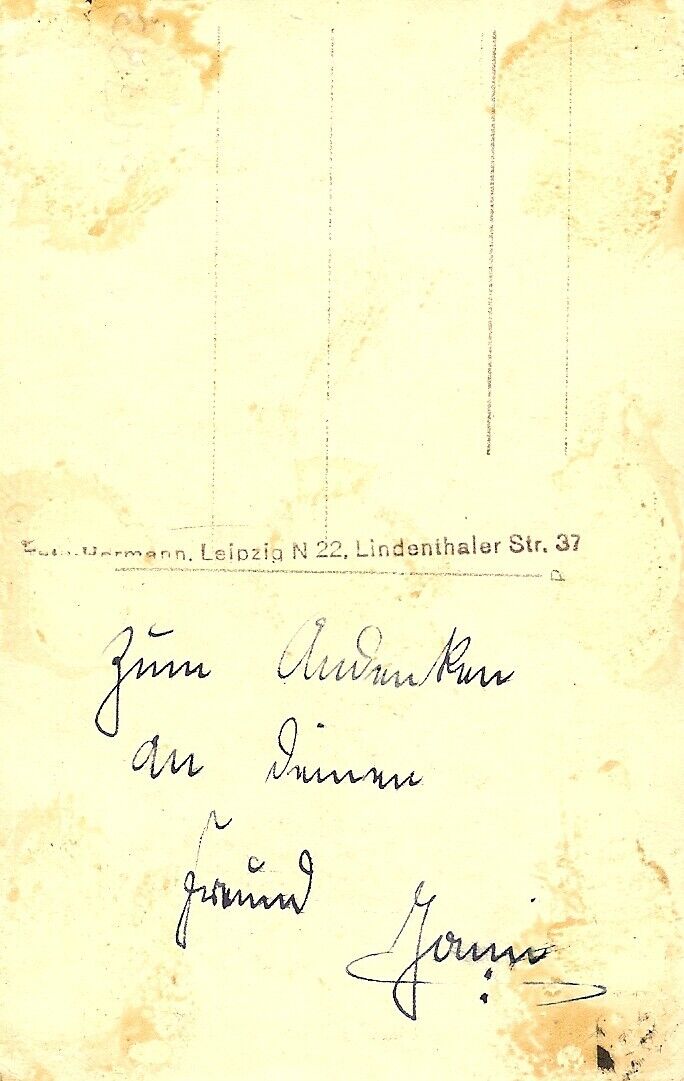 Foto-Hermann, Leipzig N 22, Lindenthaler Str. 37
Zum Andenken
an deinen
Freund